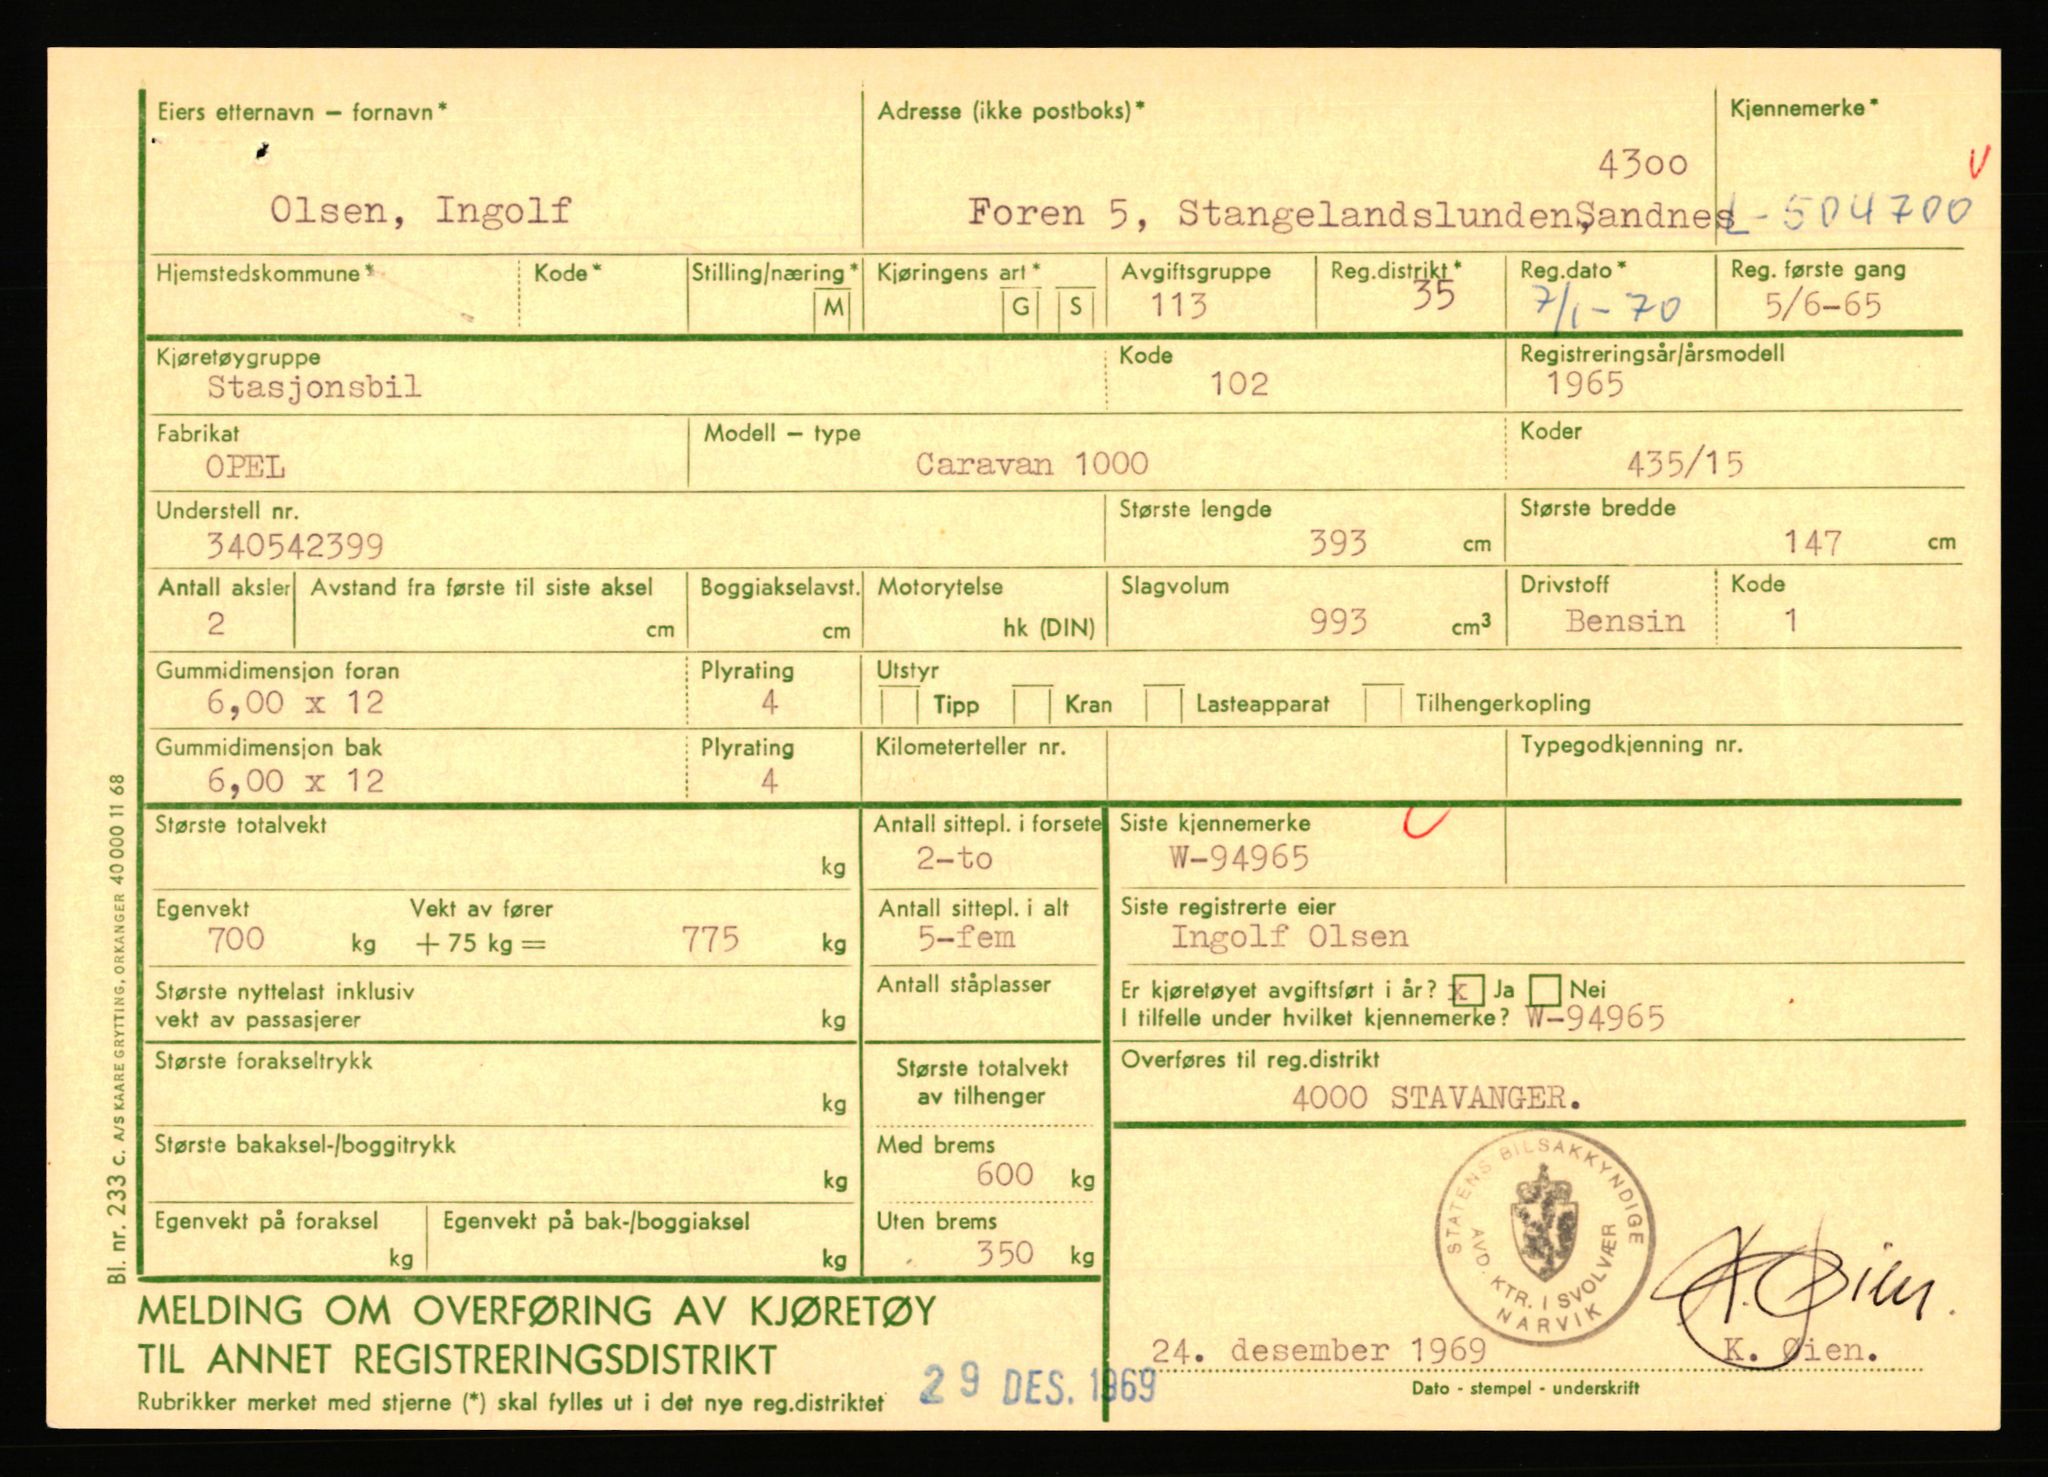 Eiers etternavn — fornavn*
Olsen, Ingolf
Adresse (ikke postboks)*
4300
Foren 5, Stangelandslunden, Sandnes
Kjennemerke*
L-504700
Hjemstedskommune*
Kode*
Stilling/næring*
M
Kjøringens art*
G S
Avgiftsgruppe
113
Reg.distrikt*
35
Reg.dato*
7/1-70
Reg. første gang
5/6-65
Kjøretøygruppe
Stasjonsbil
Kode
102
Registreringsår/årsmodell
1965
Fabrikat
OPEL
Modell — type
Caravan 1000
Koder
435/15
Understell nr.
340542399
Største lengde
393 cm
Største bredde
147 cm
Antall aksler
2
Avstand fra første til siste aksel
cm
Boggiakselavst.
cm
Motorytelse
hk (DIN)
Slagvolum
993 cm³
Drivstoff
Bensin
Kode
1
Gummidimensjon foran
6,00 x 12
Plyrating
4
Utstyr
Tipp Kran Lasteapparat Tilhengerkopling
Gummidimensjon bak
6,00 x 12
Plyrating
4
Kilometerteller nr.
Typegodkjenning nr.
Største totalvekt
kg
Antall sittepl. i forsete
2-to
Siste kjennemerke
W-94965
Egenvekt
700 kg
Vekt av fører
+ 75 kg = 775 kg
Antall sittepl. i alt
5-fem
Siste registrerte eier
Ingolf Olsen
Største nyttelast inklusiv
vekt av passasjerer kg
Antall ståplasser
Er kjøretøyet avgiftsført i år? x Ja Nei
I tilfelle under hvilket kjennemerke? W-94965
Største forakseltrykk
kg
Største totalvekt
av tilhenger
Overføres til reg.distrikt
4000 STAVANGER.
Største bakaksel-/boggitrykk
kg
Med brems
600 kg
Egenvekt på foraksel
kg
Egenvekt på bak-/boggiaksel
kg
Uten brems
350 kg
STATENS BILSAKKYNDIGE
AVD. KTR. I SVOLVÆR
NARVIK
K. Øien.
24. desember 1969 K. Øien.
Dato - stempel - underskrift
MELDING OM OVERFØRING AV KJØRETØY
TIL ANNET REGISTRERINGSDISTRIKT
Rubrikker merket med stjerne (*) skal fylles ut i det nye reg.distriktet
29 DES. 1969
Bl. nr. 233 c. A/S KAARE GRYTTING, ORKANGER 40 000 11 68